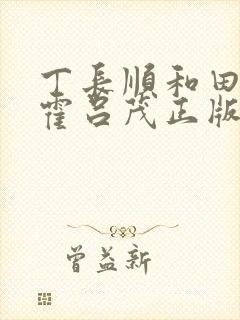 丁長順和田
霍呂茂正版
曾益新